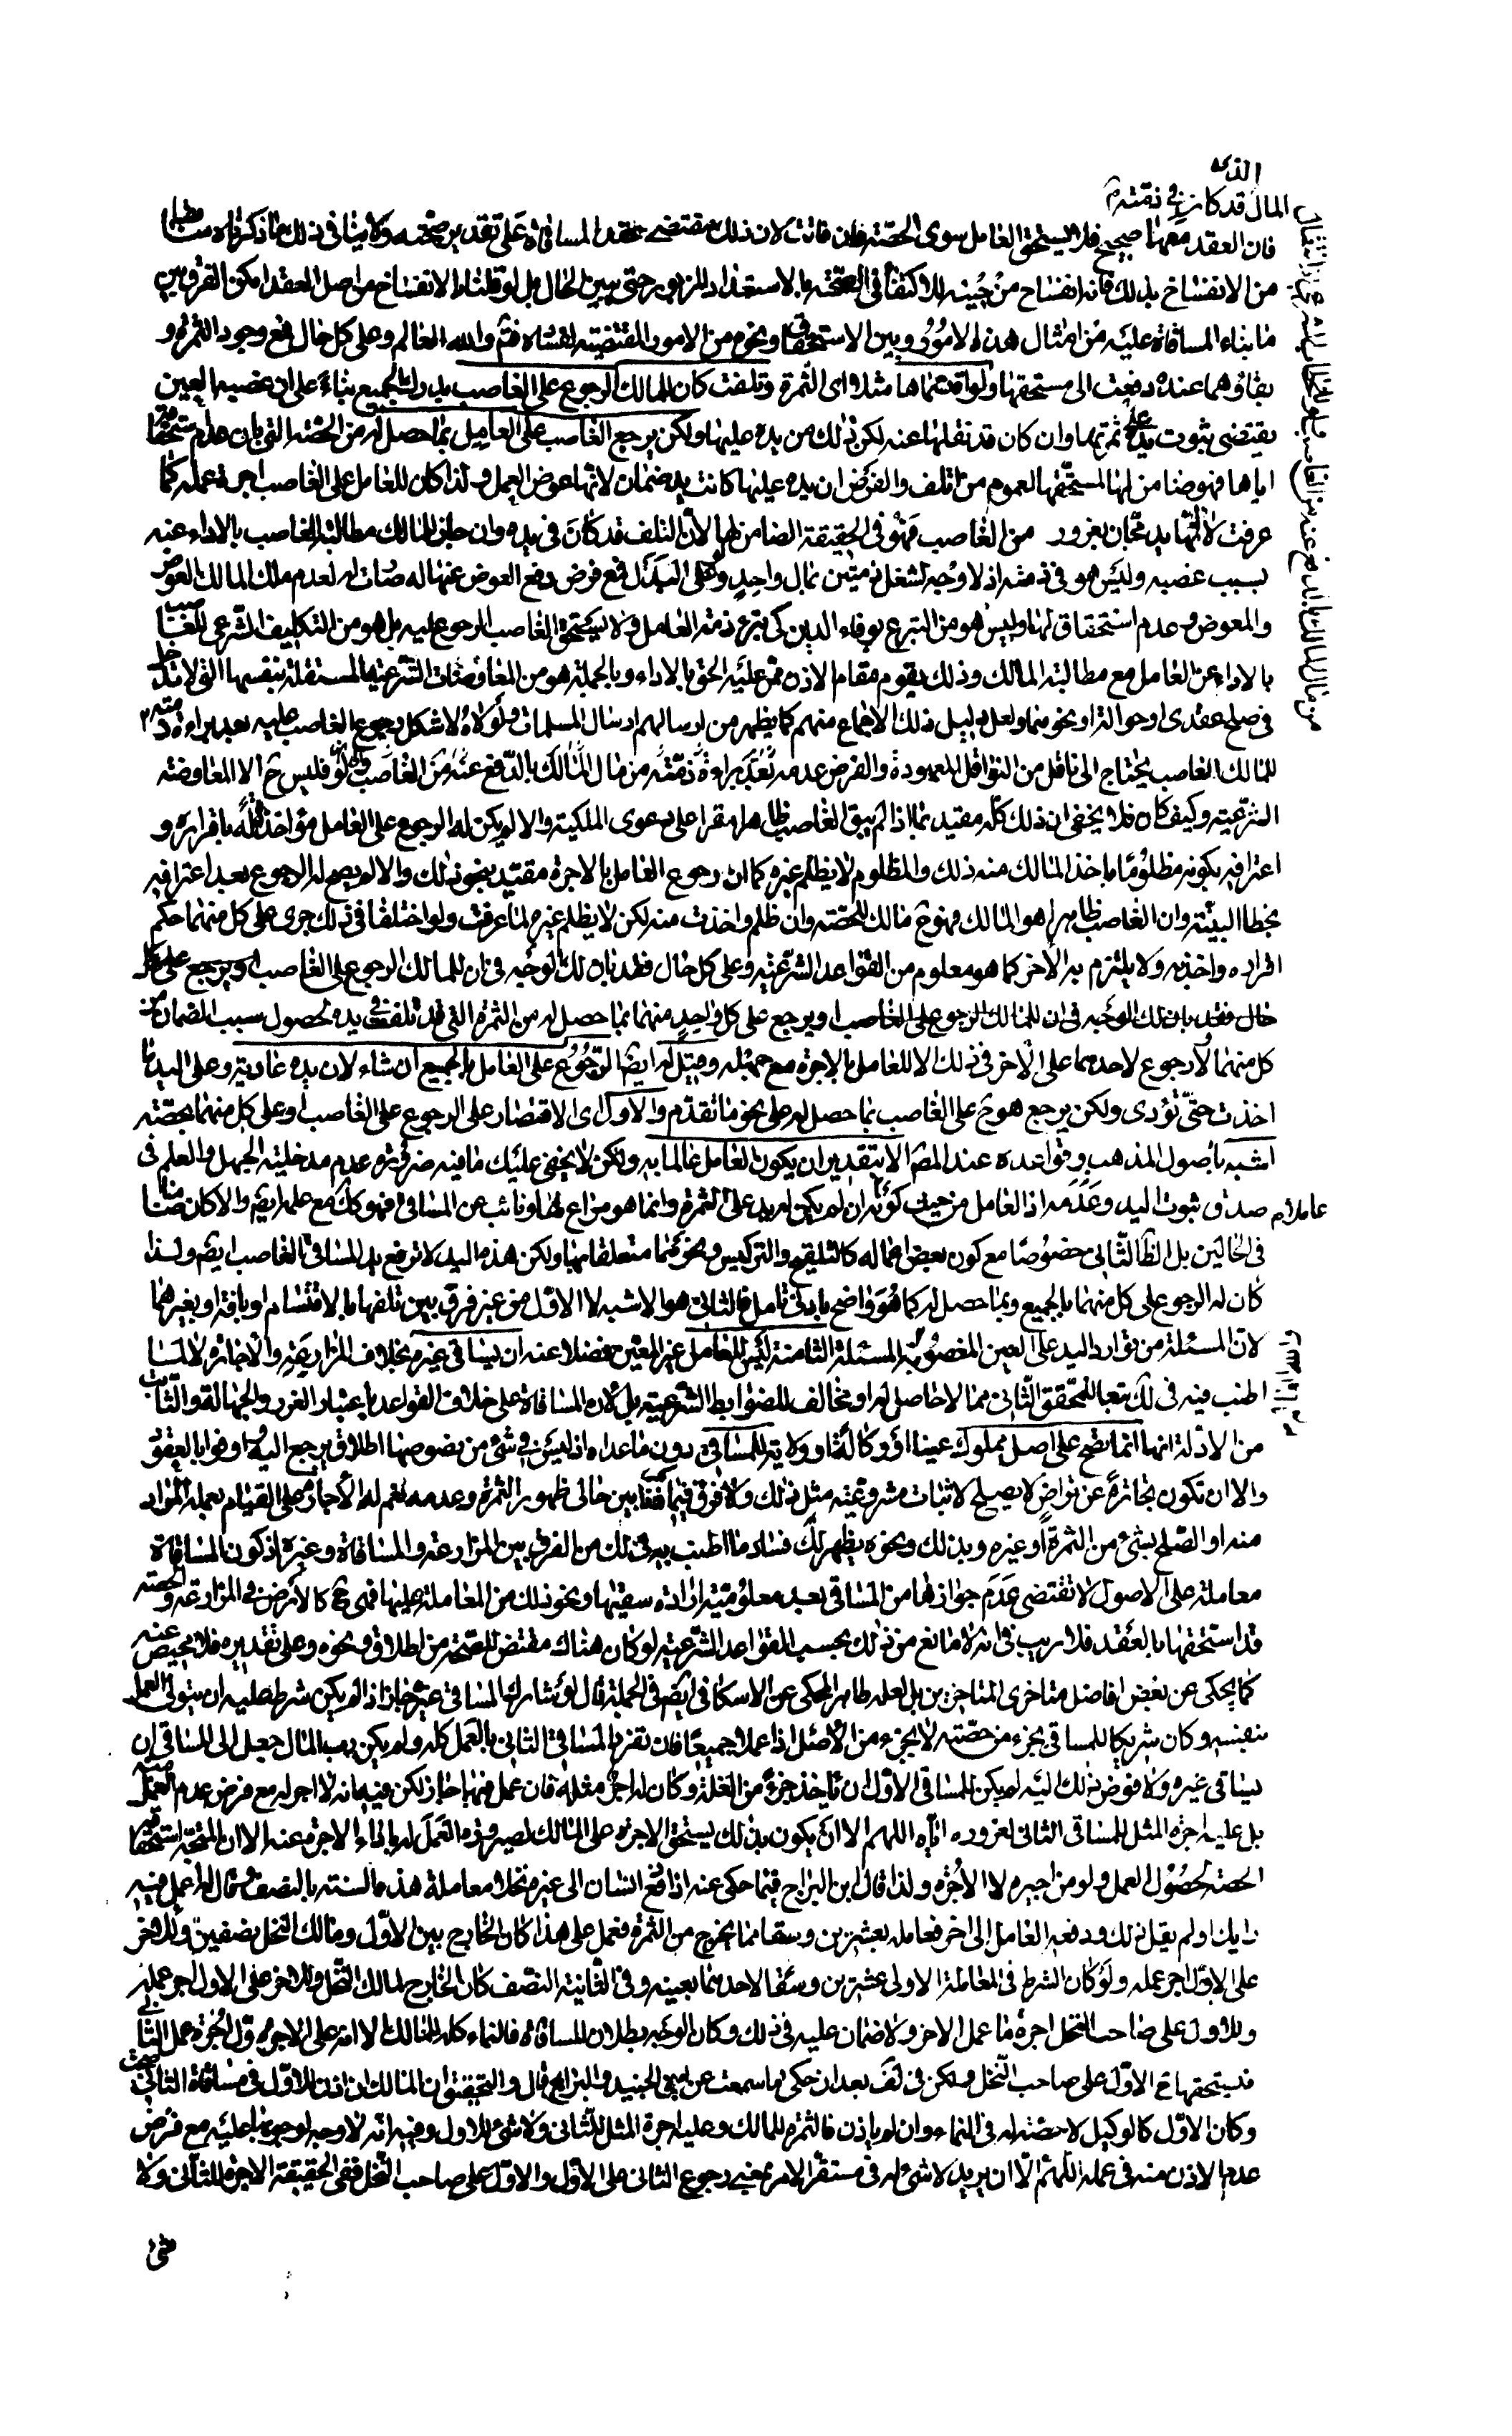 الذي
المال قد كان في ذمته م
فان العقد معهما صحيح فلا يستحق العامل سوى الحصة وان فاتت لان ذلك مقتضى عقد المساقاة على تقدير صحته ولا ينافي ذلك ما ذكرناه
من الانفساخ بذلك فانه انفساخ من حينه للاكتفاء في الصحة بالاستعداد المزبور حتى يبين الحال بل لو قلنا بالانفساخ من اصل العقد امكن الفرق بين
ما بناء المساقاة عليه من امثال هذه الامور وبين الاستحقاق ونحوه من الامور المقتضية لفساده فتم والله العالم وعلى كل حال فمع وجود الثمرة و
بقاؤهما عنده دفعت الى مستحقها ولو اقتسماها مثلا اي الثمرة وتلفت كان للمالك الرجوع على الغاصب بدرك الجميع بناء على ان غصبه العين
يقتضي ثبوت يده على ثمرتها وان كان قد نقلها عنه لكن ذلك من يده عليها ولكن يرجع الغاصب على العامل بما حصل له من الحصة التي بان عدم استحقاقه
اياها فهو ضامن لها لمستحقها لعموم من اتلف والفرض ان يده عليها كانت يد ضمان لانها عوض العمل ولذا كان للعامل على الغاصب اجرة عمله كما
عرفت لا انها يد مجان بغرور من الغاصب فهو في الحقيقة الضامن لها لان التلف قد كان في يده وان جاز للمالك مطالبة الغاصب بالاداء عنه
بسبب غصبه وليس هو في ذمته اذ لا وجه لشغل ذمتين بمال واحد ولو على البدل فمع فرض دفع العوض عنها له صارت له لعدم ملك المالك العوض
والمعوض وعدم استحقاق لها وليس هو من التبرع بوفاء الدين كي تبرء ذمة العامل ولا يستحق الغاصب الرجوع عليه بل هو من التكليف الشرعي للغاصب
بالاداء عن العامل مع مطالبة المالك وذلك يقوم مقام الاذن ممن عليه الحق بالاداء وبالجملة هو من المعاوضات الشرعية المستقلة بنفسها التي لا تدخل
في صلح عقدي او حوالة او نحوهما ولعل دليل ذلك الاجماع منهم كما يظهر من ارسالهم ارسال المسلمات ولولاه لاشكل رجوع الغاصب عليه بعد براءة ذمته
للمالك الغاصب يحتاج الى ناقل من النواقل المعهودة والفرض عدمه بعد براءة ذمته من مال المالك بالدفع عنه من الغاصب فليس ح الا المعاوضة
الشرعية وكيف كان فلا يخفى ان ذلك كله مقيد بما اذا لم يبق الغاصب ظاهرا مقرا على دعوى الملكية والا لم يكن له الرجوع على العامل مؤاخذة له باقراره و
اعترافه بكونه مظلوما باخذ المالك منه ذلك والمظلوم لا يظلم غيره كما ان رجوع العامل بالاجرة مقيد بنحو ذلك والا لم يصح له الرجوع بعد اعترافه
بخطا البينة وان الغاصب ظاهرا هو المالك فهو ح مالك للحصة وان ظلم واخذت منه لكن لا يظلم غيره لما عرفت ولو اختلفا في ذلك جرى على كل منهما حكم
اقراره واخذ به ولا يلتزم به الاخر كما هو معلوم من القواعد الشرعية وعلى كل حال فقد بان لك الوجه في ان للمالك الرجوع على الغاصب او يرجع على كل
حال فقد بان لك الوجه في ان للمالك الرجوع على الغاصب او يرجع على كل واحد منهما بما حصل له من الثمرة التي قد تلفت في يده لحصول سبب الضمان من
كل منهما ولا رجوع لاحدهما على الاخر في ذلك الا للعامل بالاجرة مع جهله وقيل له ايضا الرجوع على العامل بالجميع ان شاء لان يده عادية وعلى اليد ما
اخذت حتى تؤدى ولكن يرجع هو ح على الغاصب بما حصل له على نحو ما تقدم والاول اي الاقتصار على الرجوع على الغاصب او على كل منهما بحصته
اشبه باصول المذهب وقواعده عند المصنف الا بتقدير ان يكون العامل عالما به ولكن لا يخفى عليك ما فيه ضرورة عدم مدخلية الجهل والعلم في
صدق ثبوت اليد وعدمه اذ العامل من حيث كونه عاملا ان لم يكن له يد على الثمرة وانما هو مراع لها ونائب عن المساقي فهو كك مع علمه ايضا والا كان ضامنا
في الحالين بل الظاهر الثاني خصوصا مع كون بعض اعماله كالتلقيح والتركيس ونحوهما متعلقا بها ولكن هذه اليد لا ترفع يد المساقي الغاصب ايضا ولذا
كان له الرجوع على كل منهما بالجميع وبما حصل له كما هو واضح بادنى تامل فالثاني هو الاشبه لا الاول من غير فرق بين تلفها بالاقتسام او بافة او بغيرهما
لان المسئلة من توارد اليد على العين المغصوبة المسئلة الثامنة ليس للعامل غير المعين فضلا عنه ان يساقي غيره بخلاف المزارعة والاجارة لا لما
اطنب فيه في لك تبعا للمحقق الثاني مما لا حاصل له او مخالف للضوابط الشرعية بل لان المساقاة على خلاف القواعد باعتبار الغرر والجهالة والثابت
من الادلة انها انما تصح على اصل مملوك عينا او وكالة او ولاية للمساقي دون ما عداه اذ ليس في شيء من نصوصها اطلاق يرجع اليه واوفوا بالعقود
والا ان تكون تجارة عن تراض لا يصلح لاثبات مشروعية مثل ذلك ولا فرق فيما ذكرنا بين حالي ظهور الثمرة وعدمه نعم له الاجارة على القيام بعمله المراد
منه او الصلح بشيء من الثمرة او غيره وبذلك ونحوه يظهر لك فساد ما اطنب به في لك من الفرق بين المزارعة والمساقاة وغيره اذ كون المساقاة
معاملة على الاصول لا تقتضي عدم جوازها من المساقي بعد معلومية ارادة سقيها ونحو ذلك من المعاملة عليها فهي ح كالارض في المزارعة والحصة
قد استحقها بالعقد فلا ريب في انه لا مانع من ذلك بحسب القواعد الشرعية لو كان هناك مقتض للصحة من اطلاق ونحوه وعلى تقديره فلا محيص عنه
كما يحكى عن بعض افاضل متاخري المتاخرين بل لعله ظاهر المحكي عن الاسكافي ايضا في الجملة قال لو شارك المساقي غيره جاز اذا لم يكن شرط عليه ان يتولى العمل
بنفسه وكان شريكا للمساقي بجزء من حصته لا بجزء من الاصل اذا عملا جميعا فان تفرد المساقي الثاني بالعمل كله ولم يكن رب المال جعل الى المساقي ان
يساقي غيره ولا فوض ذلك اليه لم يكن للمساقي الاول ان ياخذ جزءا من الغلة وكان له اجر مثله فان عمل فيها جاز لكن فيه انه لا اجر له مع فرض عدم العمل منه
بل عليه اجرة المثل للمساقي الثاني لغروره اياه اللهم الا ان يكون بذلك يستحق الاجرة على المالك لصيرورة العمل له باداء الاجرة عنه الا ان المتجه استحقاقه
الحصة لحصول العمل ولو من اجيره لا الاجرة ولذا قال ابن البراج فيما حكى عنه اذا دفع انسان الى غيره نخلا معاملة هذه السنة بالنصف وقال له اعمل فيه
برايك او لم يقل ذلك ودفعه العامل الى اخر فعامله بعشرين وسقا مما يخرج من الثمرة فعمل على هذا كان الخارج بين الاول ومالك النخل نصفين وللاخر
على الاول اجر عمله ولو كان الشرط في المعاملة الاولى عشرين وسقا لاحدهما بعينه وفي الثانية النصف كان الخارج لمالك النخل وللاخر على الاول اجر عمله
وللاول على صاحب النخل اجرة ما عمل الاخر ولا ضمان عليه في ذلك وكان الوجه بطلان المساقاة فالنماء كله للمالك الا انه على الاجرة وان اجرة عمل الثاني
قد يستحقها ح الاول على صاحب النخل ولكن في لف بعد ان حكى ما سمعت عن ابني الجنيد والبراج قال والتحقيق ان المالك ان اذن للاول في مساقاة الثاني صحت
وكان الاول كالوكيل لا حصة له في النماء وان لم ياذن فالثمرة للمالك وعليه اجرة المثل للثاني ولا شيء للاول وفيه انه لا وجه لوجوبها عليه مع فرض
عدم الاذن منه في عمله اللهم الا ان يريد لا شيء له في مستقر الامر بمعنى رجوع الثاني على الاول والاول على صاحب النخل ففي الحقيقة الاجرة للثاني ولا